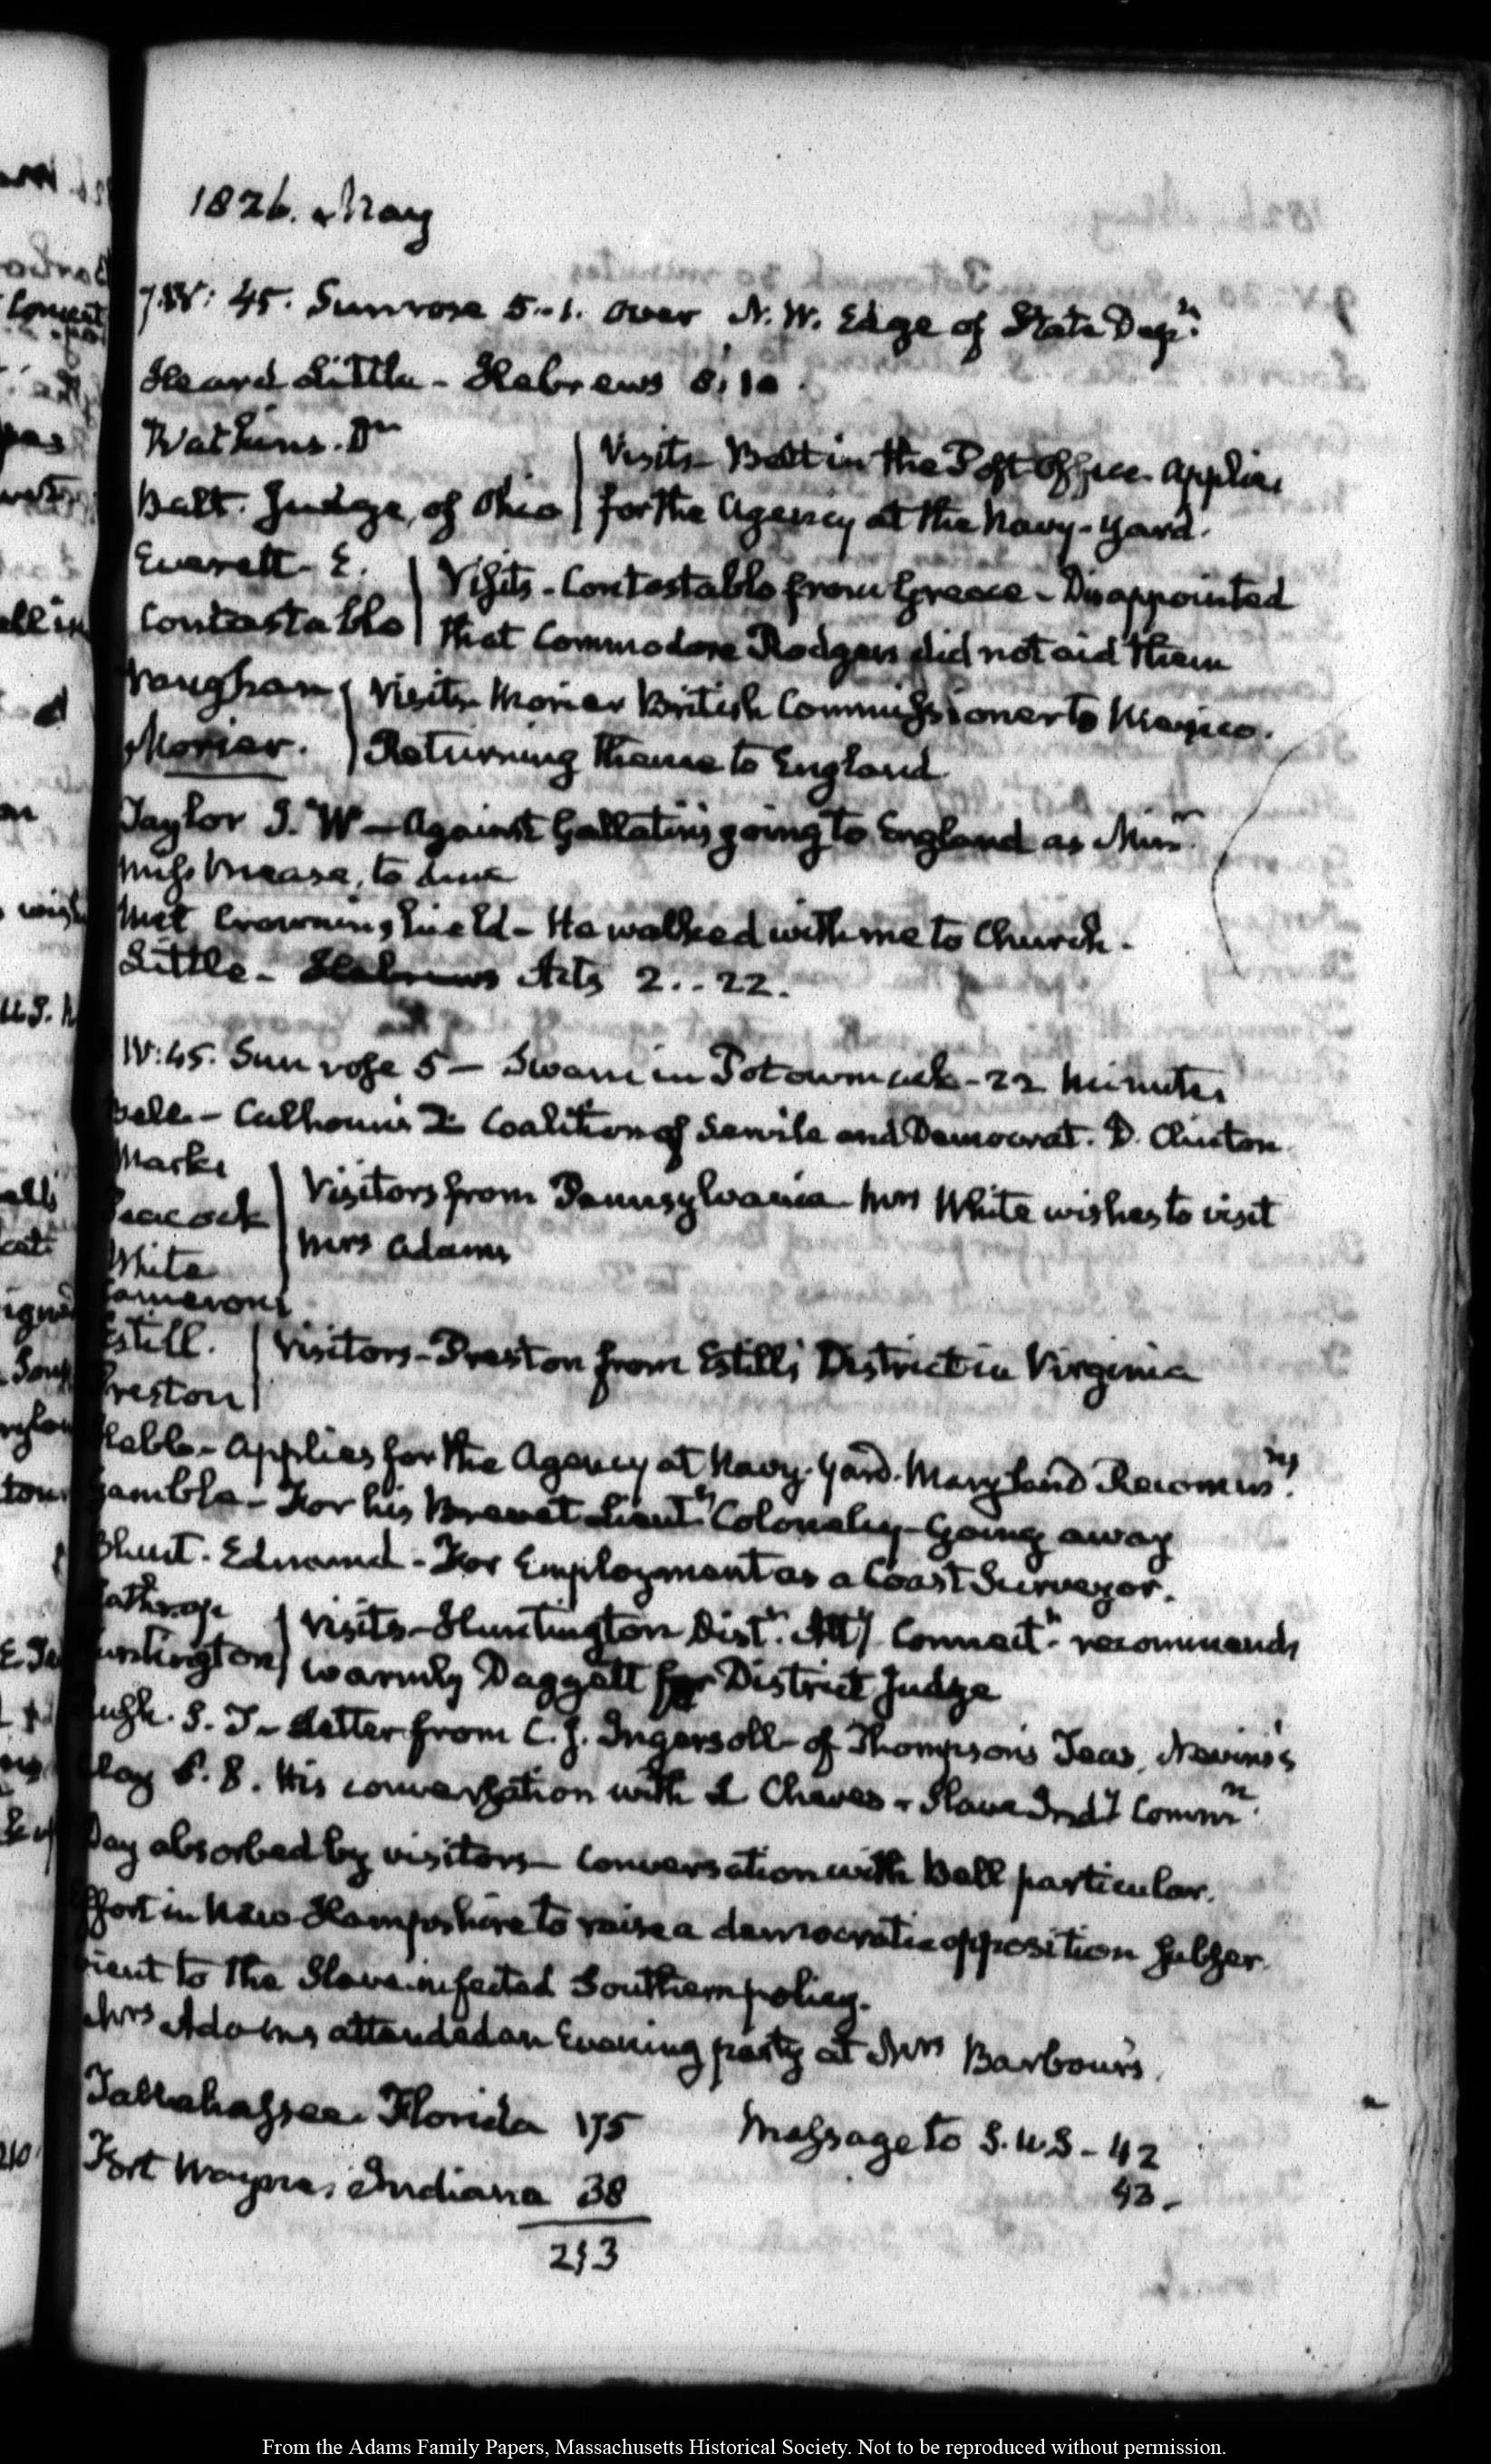 1826. May
7. IV: 45. Sun rose 5..1. over N. W. Edge of State Dept.
Heard Little - Hebrews 8:10.
Watkins. Dr
Balt. Judge, of Ohio
Visits - Balt in the Post Office. applies
for the Agency at the Navy-Yard.
Everett. E.
Contostablo
Visits - Contostablo from Greece - Disappointed
that Commodore Rodgers did not aid them
Vaughan
Morier.
Visits - Morier British Commissioner to Mexico.
Returning thence to England
Taylor J. W - Against Gallatin's going to England as Minr.
Miss Mease, to dine
Met Crowninshield - He walked with me to Church -
Little - Hebrews Acts 2..22.
IV: 45. Sun rose 5 - Swam in Potowmack - 22 minutes
Bell - Calhoun's Coalition of Servile and Democrat. D. Clinton
Marks
Peacock
White
Visitors from Pennsylvania - Mrs White wishes to visit
Mrs Adams
Camerons
Estill.
Preston
Visitors - Preston from Estill's District in Virginia
applies for the Agency at Navy-Yard. Maryland
Gamble - For his Brevet Lieutt. Colonelcy - Going away
Blunt. Edmund - For Employment as a Coast Surveyor.
Lathrop
Huntington
Visits - Huntington Distt. Atty. Connectt. recommends
warmly Daggett for District Judge
S. Letter from C. J. Ingersoll - of Thompson's Teas, Nevins's
Clay His conversation with L Cheves - Slave Indy Commn.
Day absorbed by visitors - Conversation with Bell particular.
Effort in New-Hampshire to raise a democratic opposition subser-
vient to the Slave infected Southern policy.
Mrs Adams attended an Evening party at Mrs Barbour's.
Tallahassee. Florida 175
Message to S. U.S - 42
Fort Wayne, Indiana 38
43 -
213
From the Adams Family Papers, Massachusetts Historical Society. Not to be reproduced without permission.